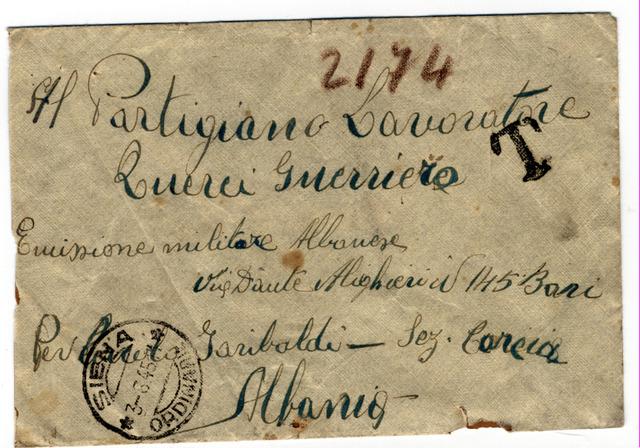 2174
All Partigiano Lavoratore
T
Querci Guerriero
Emissione militare Albanese
Via Dante Alighieri N 145 Bari
Per Garibaldi — Sez.
Albania
SIENA
3-8.45
ORDINARIE